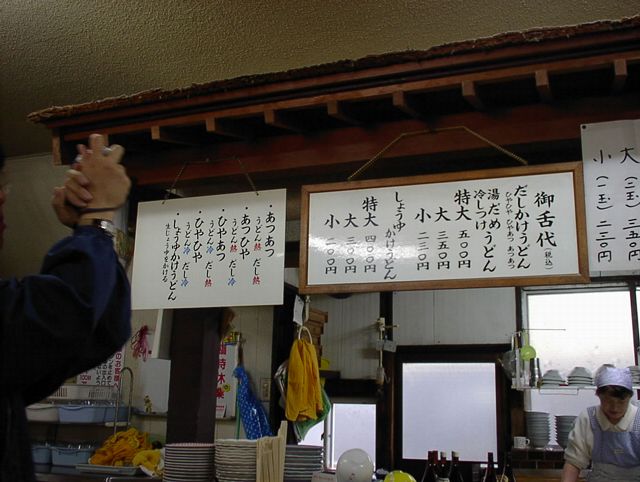 大(二玉)三五〇
小(一玉)二三〇
御舌代(税込)
だしかけうどん
ひやひや ひやあつ あつあつ
湯だめうどん
冷しつけ
特大 五〇〇円
大 三五〇円
小 二三〇円
しょうゆかけうどん
特大 四〇〇円
大 三〇〇円
小 二〇〇円
・あつあつ
うどん熱 だし熱
・あつひや
うどん熱 だし冷
・ひやあつ
うどん冷 だし熱
・ひやひや
うどん冷 だし冷
・しょうゆかけうどん
生じょうゆをかける
臨時休業